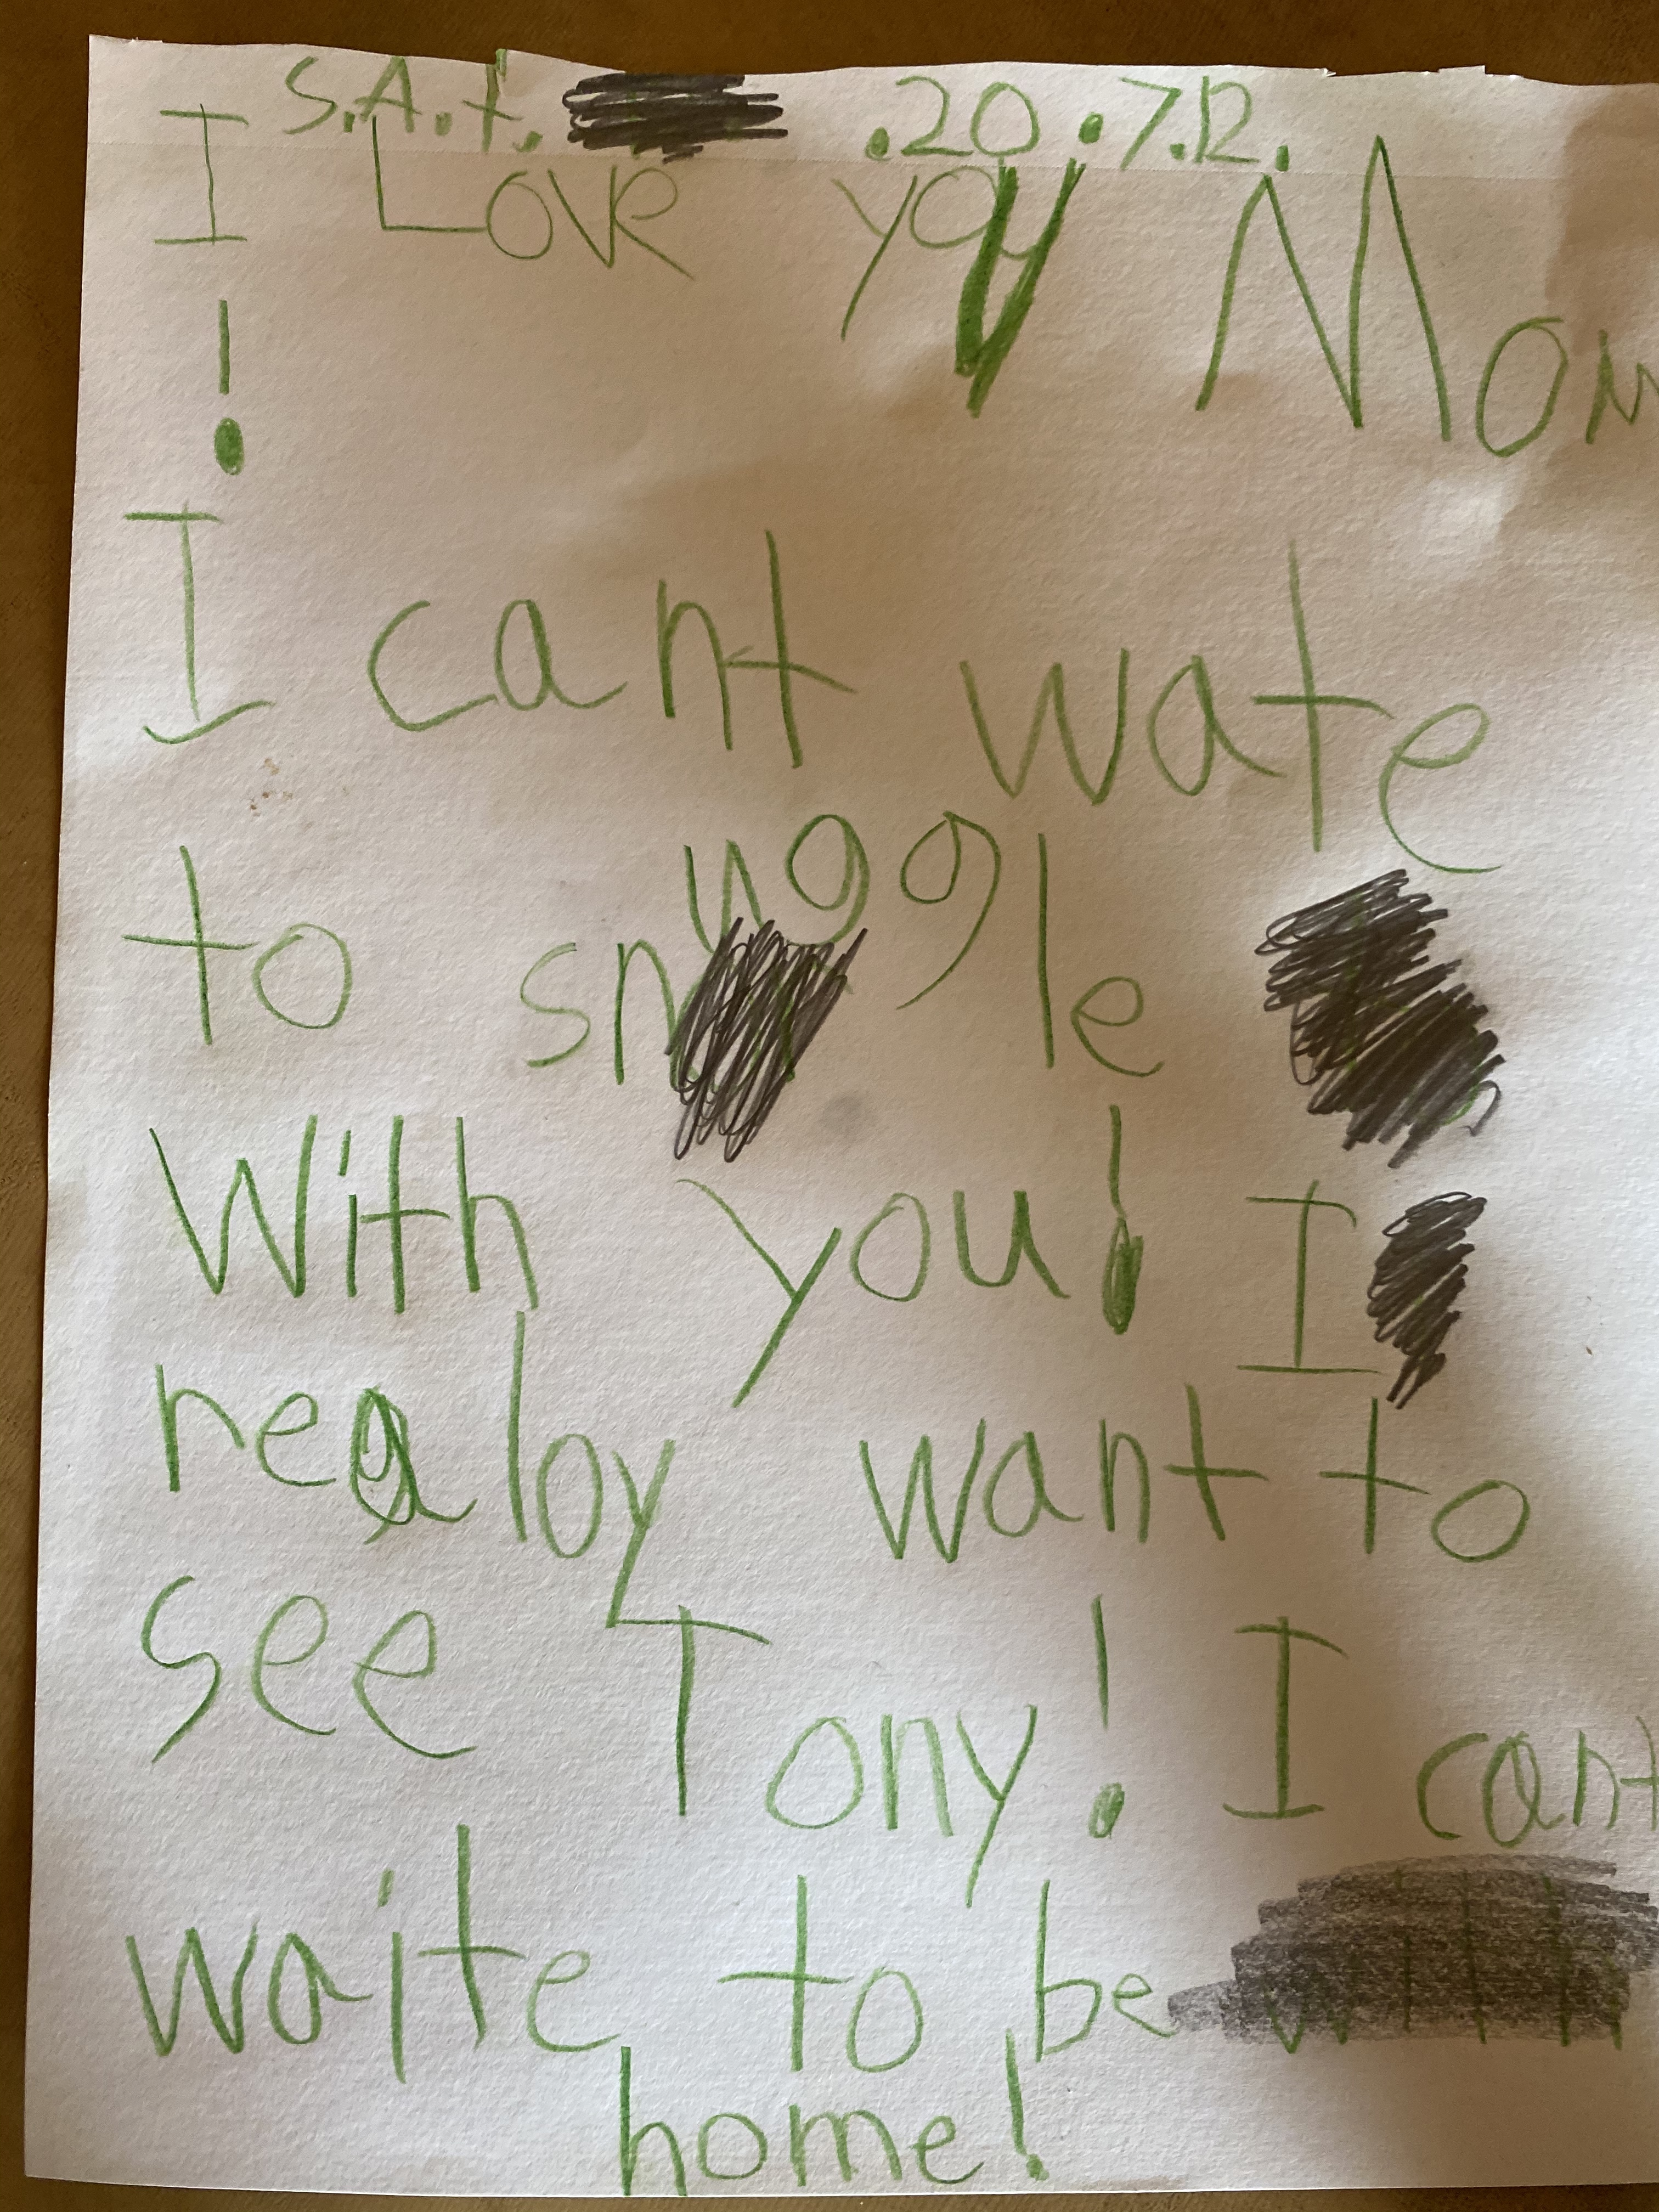 S.A.t. .20.7.12.
I Love you Mom
!
I cant wate
to snuggle
With you! I
realoy want to
see Tony! I cant
waite to be
home!